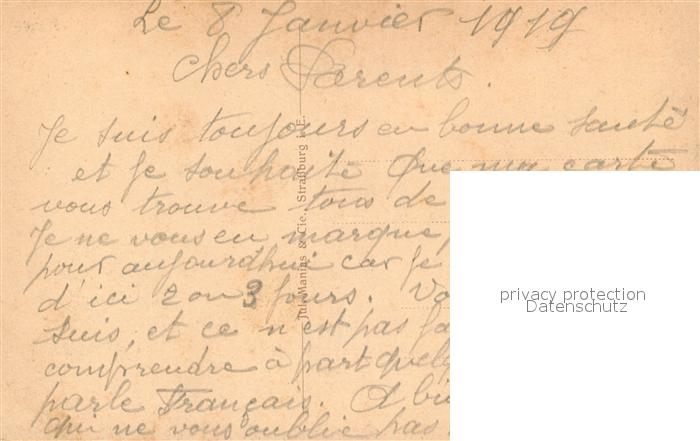 Le 8 Janvier 1919
Chers Parents.
Je suis toujours en bonne santé
et Je souhaite Que ma carte
vous trouve tous de
Je ne vous en marque
pour aujourd'hui car Je
d'ici 2 ou 3 Jours. Vo
suis, et ce n'est pas fa
comprendre à part quelq
parle Français. A bi
qui ne vous oublie pas.
Jul. Manias & Cie., Straßburg i. E.
privacy protection
Datenschutz